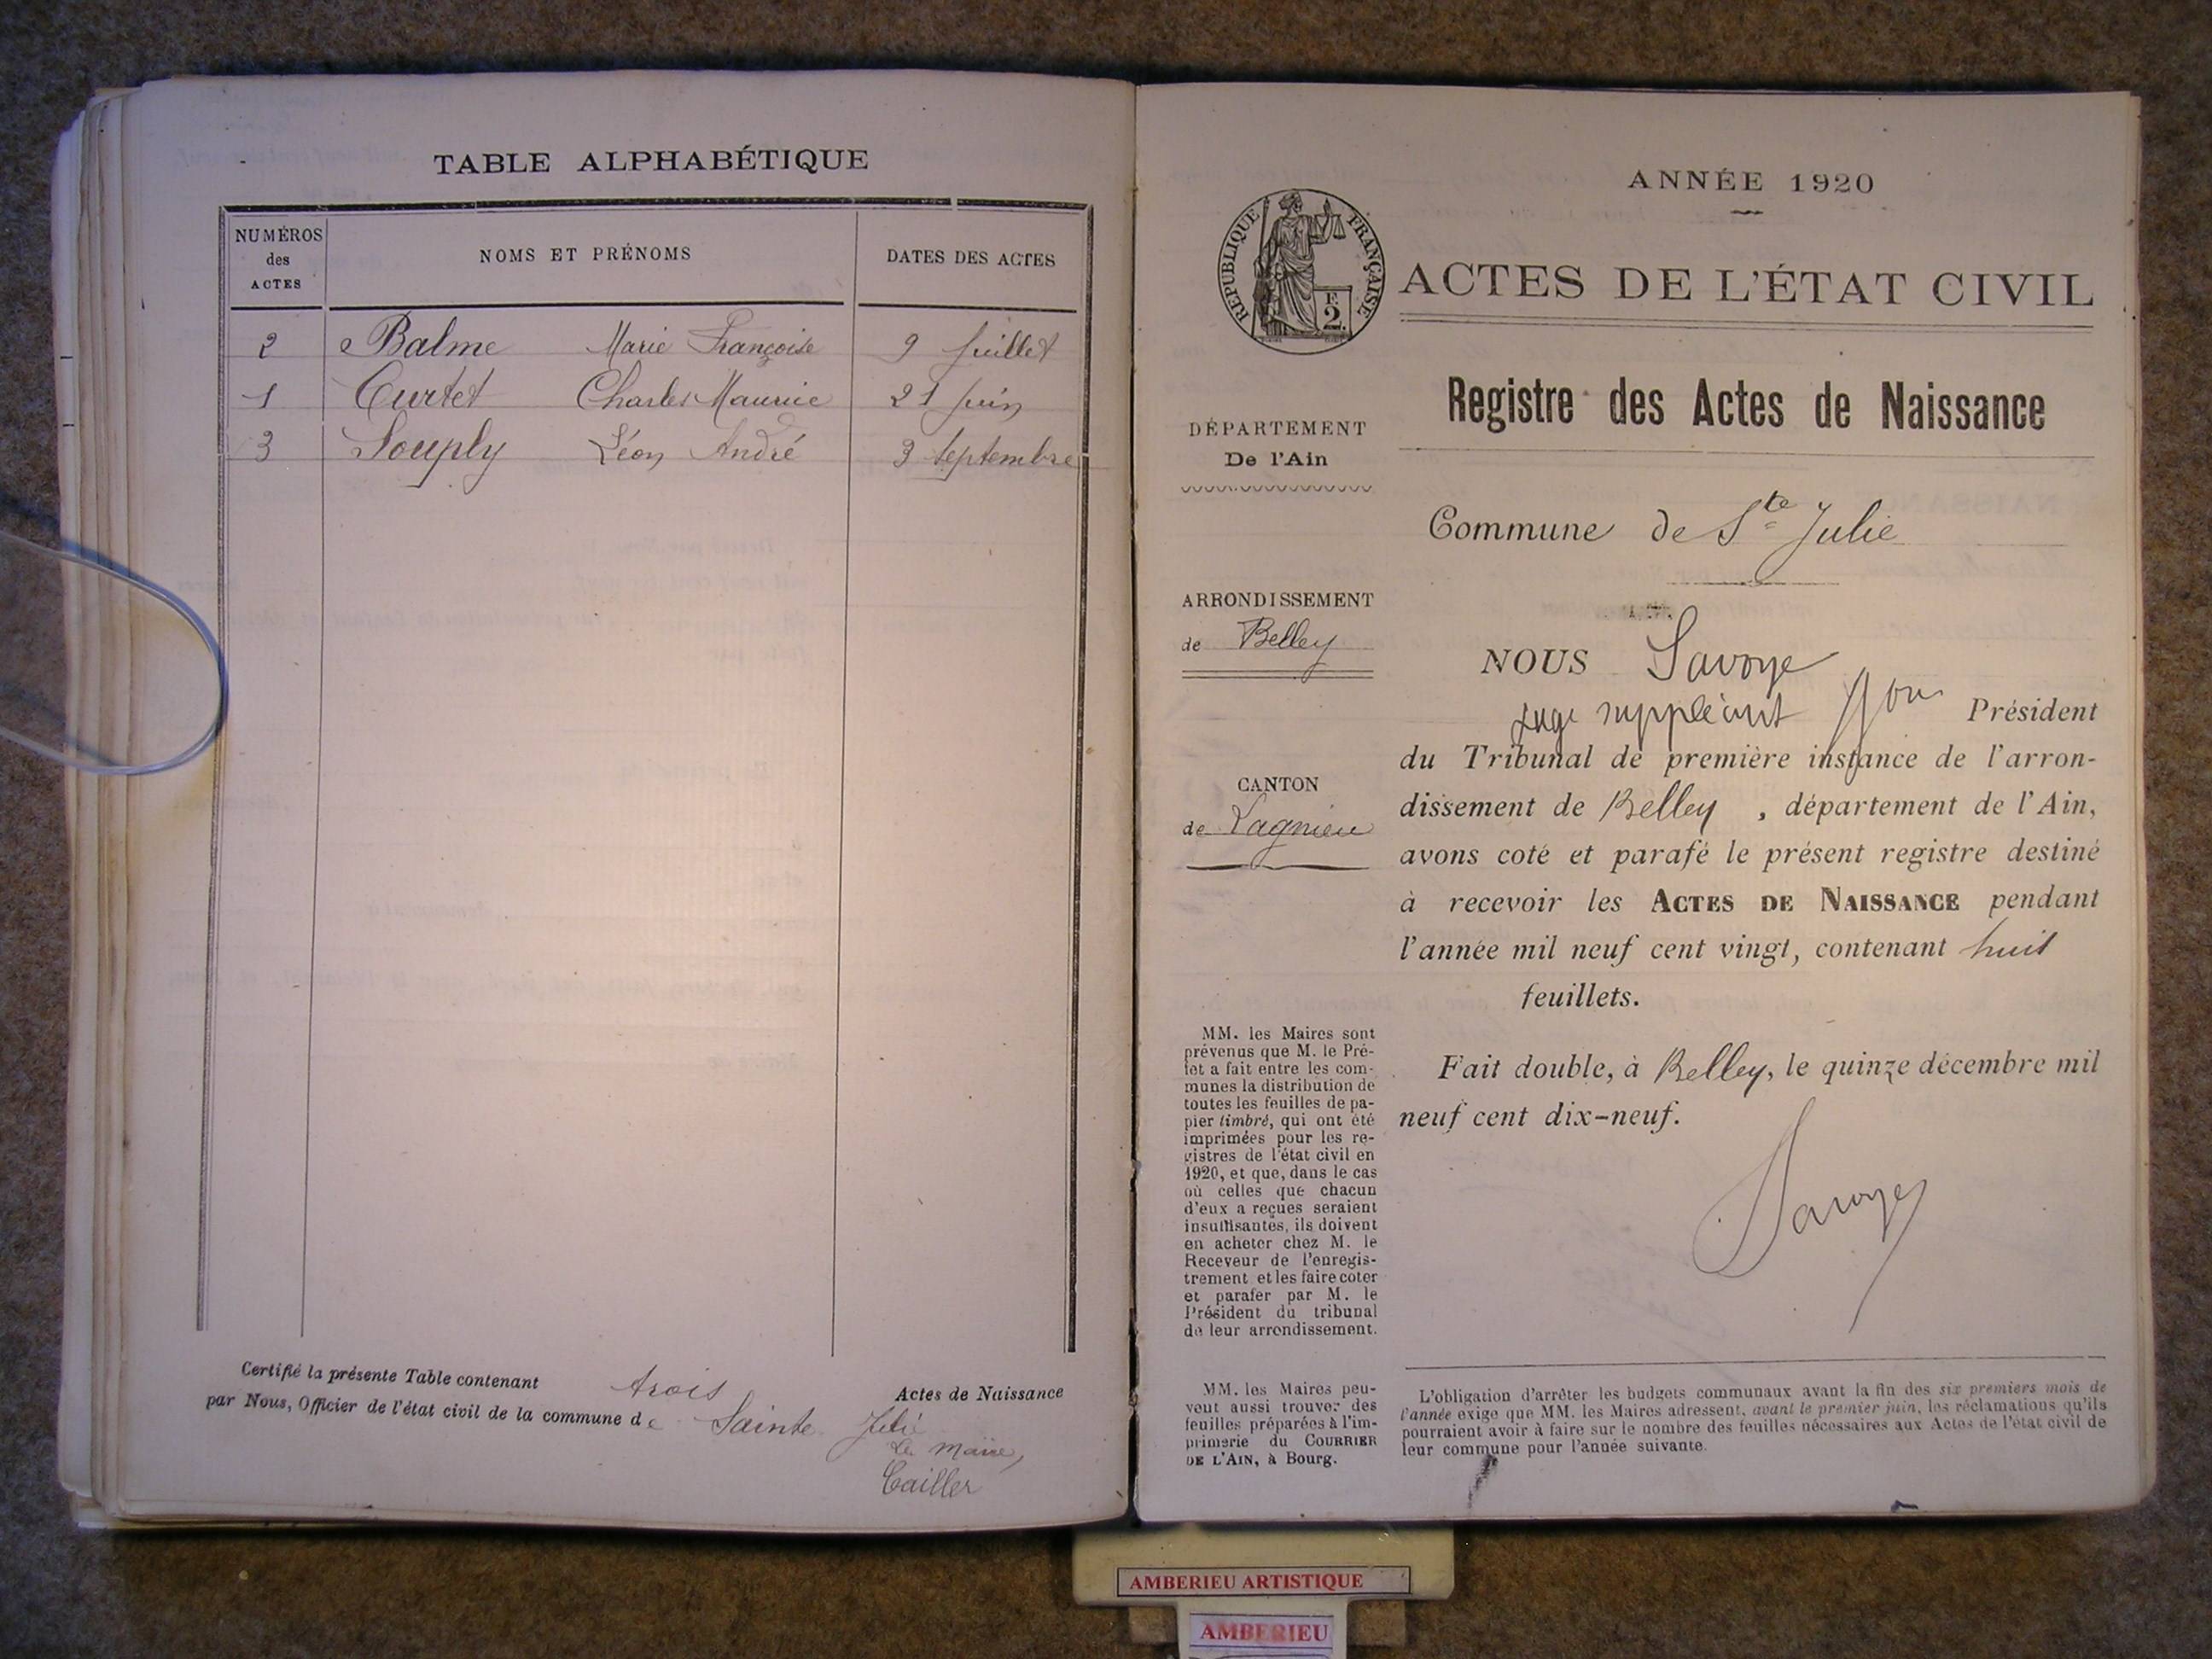 TABLE ALPHABÉTIQUE
NUMÉROS des ACTES
NOMS ET PRÉNOMS
DATES DES ACTES
2 Balme Marie Françoise 9 juillet
1 Curtet Charles Maurice 21 juin
3 Souply Léon André 3 septembre
Certifié la présente Table contenant trois Actes de Naissance
par Nous, Officier de l'état civil de la commune de Sainte Julie
Le Maire,
Cailler
ANNÉE 1920
RÉPUBLIQUE FRANÇAISE
F.
2.
ACTES DE L'ÉTAT CIVIL
Registre des Actes de Naissance
DÉPARTEMENT
De l'Ain
Commune de Ste Julie
ARRONDISSEMENT
de Belley
CANTON
de Lagnieu
NOUS Savoye
juge suppléant Président
du Tribunal de première instance de l'arron-
dissement de Belley, département de l'Ain,
avons coté et parafé le présent registre destiné
à recevoir les ACTES DE NAISSANCE pendant
l'année mil neuf cent vingt, contenant huit
feuillets.
Fait double, à Belley, le quinze décembre mil
neuf cent dix-neuf.
Savoye
MM. les Maires sont
prévenus que M. le Pré-
fet a fait entre les com-
munes la distribution de
toutes les feuilles de pa-
pier timbré, qui ont été
imprimées pour les re-
gistres de l'état civil en
1920, et que, dans le cas
où celles que chacun
d'eux a reçues seraient
insuffisantes, ils doivent
en acheter chez M. le
Receveur de l'enregis-
trement et les faire coter
et parafer par M. le
Président du tribunal
de leur arrondissement.
MM. les Maires peu-
vent aussi trouver des
feuilles préparées à l'im-
primerie du COURRIER
DE L'AIN, à Bourg.
L'obligation d'arrêter les budgets communaux avant la fin des six premiers mois de
l'année exige que MM. les Maires adressent, avant le premier juin, les réclamations qu'ils
pourraient avoir à faire sur le nombre des feuilles nécessaires aux Actes de l'état civil de
leur commune pour l'année suivante.
AMBERIEU ARTISTIQUE
AMBERIEU